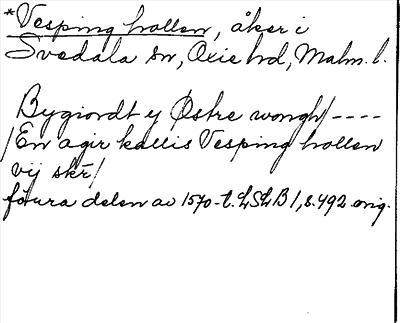 *Vesping hollen, åker i
Svedala sn, Oxie hd, Malm. l.
Bygiordt y Østre wongh/----
/En agir kallis Vesping hollen
vij skr/
förra delen av 1570-t. LSLB 1, s. 492 orig.